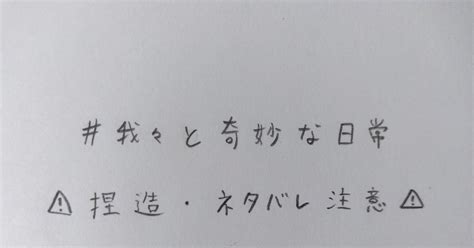 #我々と奇妙な日常
⚠捏造・ネタバレ注意⚠